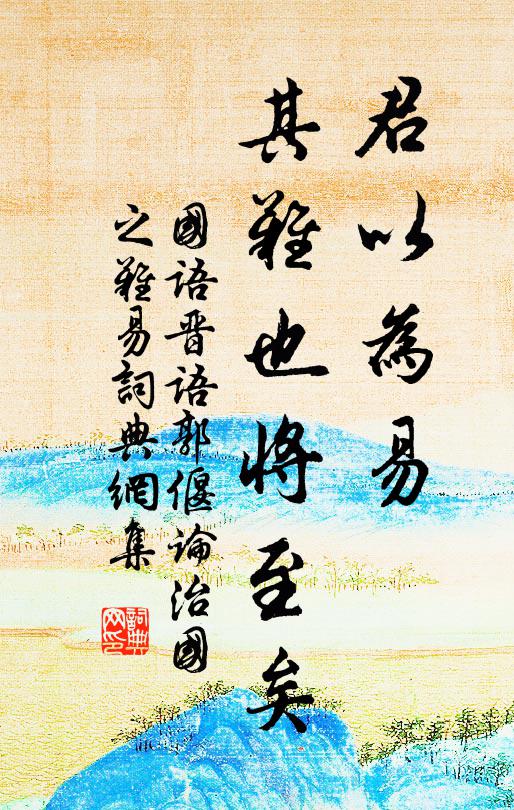 君以為易
其難也將至矣
國語晉語郭偃論治國
之難易詞典網集
詞典
网印